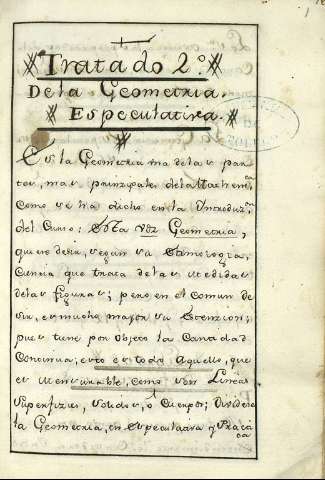 Tratado 2º.
De la Geometria.
Especulativa.
Es la Geometria una de las par
tes, mas prinzipales de las Mathem.cas
como se ha dicho en la Introduz.on
del Curso: Esta voz Geometria,
quiere desir, segun su Etimologia,
Ciencia que trata de las Medidas
de las figuras; pero en el comun de
sir, es mucho mayor su Estenzion;
pues tiene por objeto la Cantidad
Continua; esto es todo Aquello, que
es Mensurable, como son Lineas
Superfizies, solidos, o Cuerpos; Dividese
la Geometria, en Especulativa y Practica
1